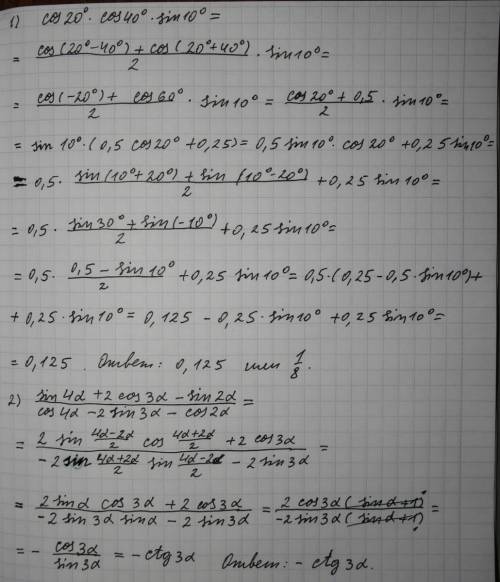 1) cos20°·cos40°·sin10°=
= (cos(20°-40°)+cos(20°+40°))/2 · sin10°=
= (cos(-20°)+ cos60°)/2 · sin10° = (cos20°+0,5)/2 · sin10°=
= sin 10°·(0,5 cos20°+0,25)= 0,5 sin10°·cos20°+0,25 sin10°=
= 0,5· (sin(10°+20°)+sin(10°-20°))/2 +0,25 sin10°=
= 0,5· (sin30°+sin(-10°))/2 +0,25 sin10°=
= 0,5· (0,5-sin10°)/2 +0,25 sin10°= 0,5·(0,25-0,5·sin10°)+
+0,25·sin10°= 0,125 -0,25·sin10° +0,25 sin10°=
= 0,125. Ответ: 0,125 или 1/8.
2) (sin4α+2cos3α-sin2α)/(cos4α-2sin3α-cos2α) =
= (2 sin (4α-2α)/2 cos (4α+2α)/2 +2cos3α)/(-2 sin (4α+2α)/2 sin (4α-2α)/2 -2sin3α) =
= (2sinα cos3α+2cos3α)/(-2sin3α sinα-2sin3α) = (2cos3α(sinα+1))/(-2sin3α(sinα+1)) =
= - cos3α/sin3α = -ctg3α Ответ: -ctg3α.